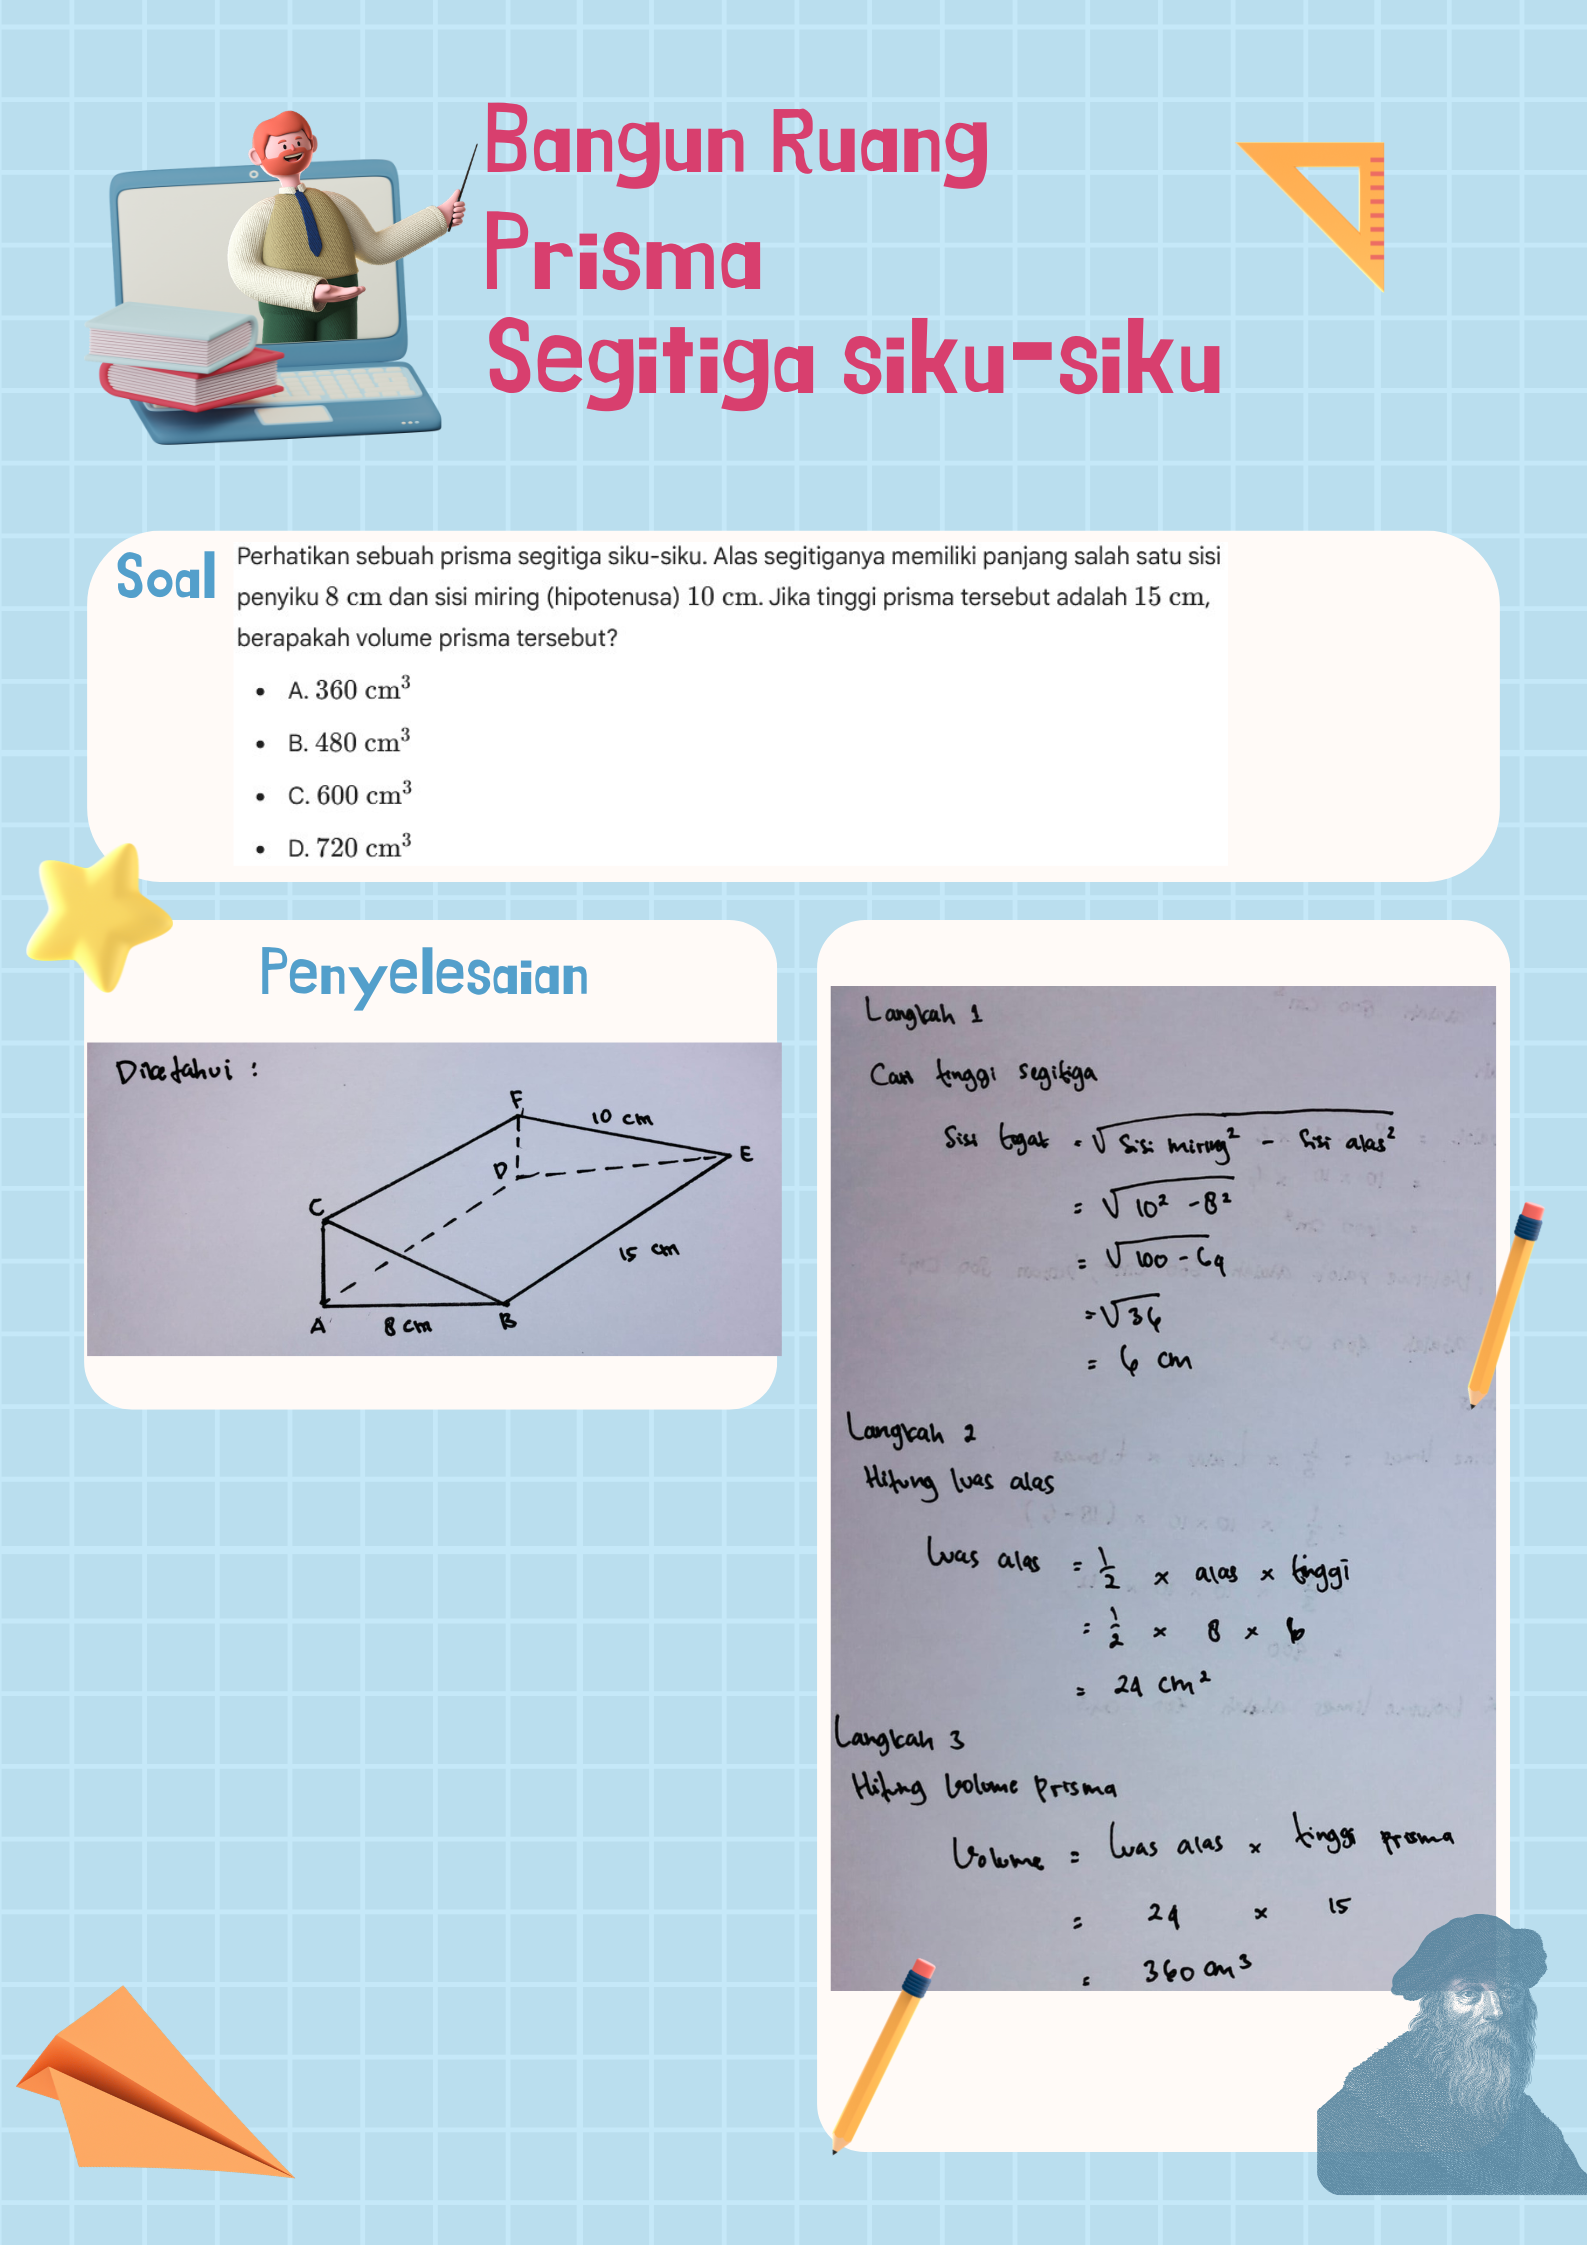 Bangun Ruang
Prisma
Segitiga siku-siku
Soal
Perhatikan sebuah prisma segitiga siku-siku. Alas segitiganya memiliki panjang salah satu sisi
penyiku 8 cm dan sisi miring (hipotenusa) 10 cm. Jika tinggi prisma tersebut adalah 15 cm,
berapakah volume prisma tersebut?
• A. 360 cm³
• B. 480 cm³
• C. 600 cm³
• D. 720 cm³
Penyelesaian
Diketahui :
F
10 cm
D
E
C
15 cm
A
8 cm
B
Langkah 1
Cari tinggi segitiga
Sisi tegak = √(Sisi miring² - Sisi alas²)
= √(10² - 8²)
= √(100 - 64)
= √36
= 6 cm
Langkah 2
Hitung luas alas
Luas alas = 1/2 × alas × tinggi
= 1/2 × 8 × 6
= 24 cm²
Langkah 3
Hitung Volume Prisma
Volume = Luas alas × tinggi prisma
= 24 × 15
= 360 cm³